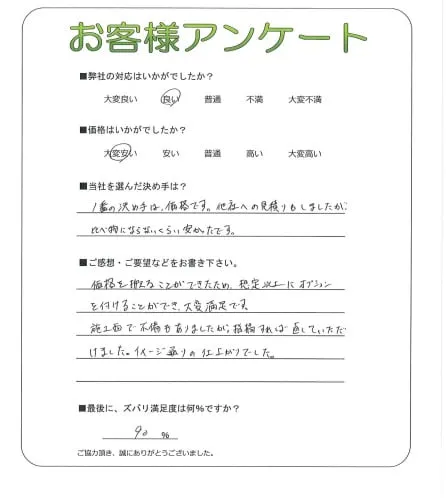 お客様アンケート
■弊社の対応はいかがでしたか？
大変良い 良い 普通 不満 大変不満
■価格はいかがでしたか？
大変安い 安い 普通 高い 大変高い
■当社を選んだ決め手は？
1番の決め手は、価格です。他社への見積りもしましたが、
比べ物にならないくらい安かったです。
■ご感想・ご要望などをお書き下さい。
価格を抑えることができたため、想定以上にオプション
を付けることができ、大変満足です。
施工面で不備もありましたが、指摘すれば直していただ
けました。イメージ通りの仕上がりでした。
■最後に、ズバリ満足度は何％ですか？
90 ％
ご協力頂き、誠にありがとうございました。